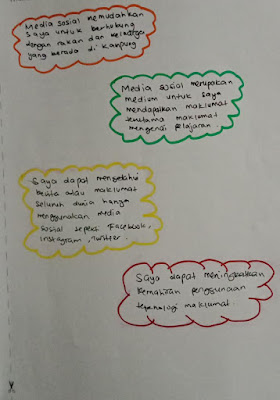 Media sosial memudahkan
saya untuk berhubung
dengan rakan dan keluarga
yang berada di kampung
Media sosial merupakan
medium untuk saya
mendapatkan maklumat
terutama maklumat
mengenai pelajaran.
Saya dapat mengetahui
berita atau maklumat
seluruh dunia hanya
menggunakan media
sosial seperti Facebook,
instagram, Twitter.
Saya dapat meningkatkan
kemahiran penggunaan
teknologi maklumat.